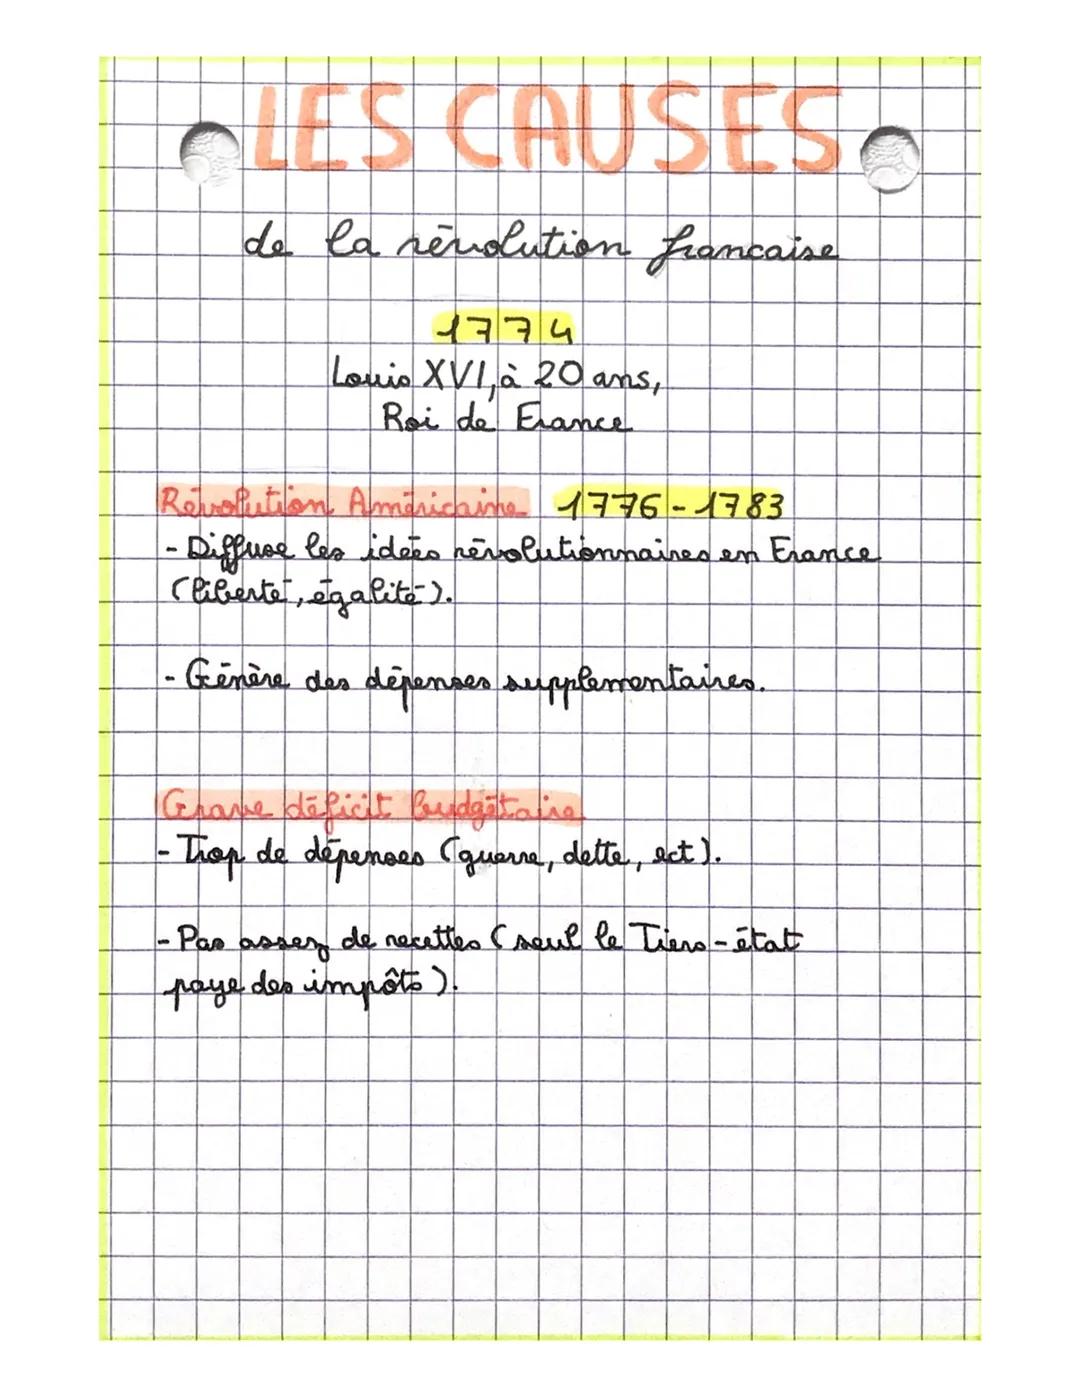 LES CAUSES
de la révolution francaise
1774
Louis XVI, à 20 ans,
Roi de France
Révolution Américaine 1776-1783
- Diffuse les idées révolutionnaires en France
(liberté, égalité).
- Génère des dépenses supplementaires.
Grave déficit budgétaire
- Trop de dépenses (guerre, dette, ect).
- Pas assez de recettes (seul le Tiers-état
paye des impôts).